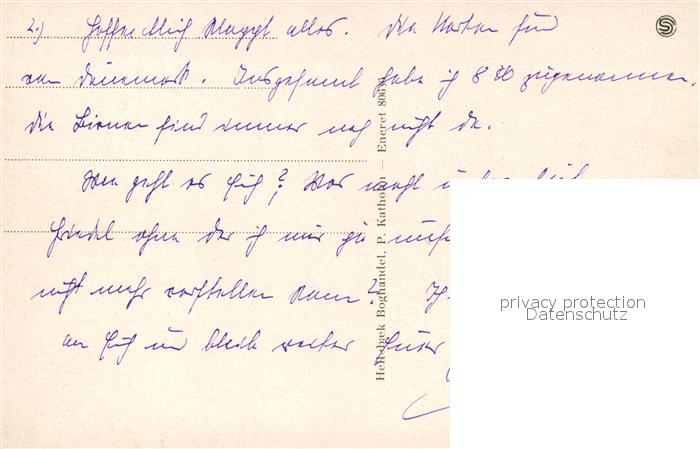 2.) Hoffentlich klappt alles. Die Karten sind
von Dänemark. Insgesamt habe ich 8 zugenommen.
die Birnen sind immer noch nicht da.
Wie geht es Euch? Was macht
Friedel ohne der ich mir
nicht mehr vorstellen kann?
an Euch und bleib weiter Euer
Hellebæk Boghandel, P. Kathohn — Eneret
privacy protection
Datenschutz